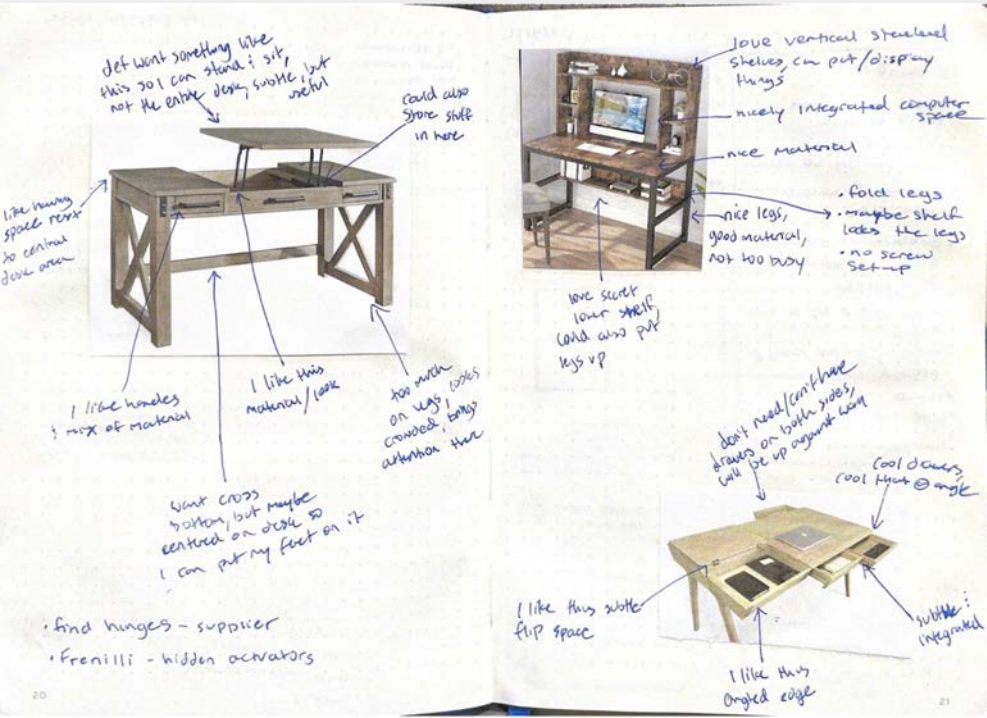 def want something like
this so I can stand & sit,
not the entire desk, subtle, but
useful
could also
store stuff
in here
like having
space next
to central
desk area
I like handles
& mix of material
I like this
material/look
too much
on legs, looks
crowded, brings
attention there
want cross
bottom, but maybe
centered on desk so
I can put my feet on it
• find hinges - supplier
• Frenilli - hidden actuators
20
love vertical
shelves, can put/display
things
nicely integrated computer
space
nice material
• fold legs
• maybe shelf
locks the legs
• no screw
set-up
nice legs,
good material,
not too busy
love secret
lower shelf,
could also put
legs up
don't need/can't have
drawers on both sides,
will be up against wall
cool drawers,
cool that @ angle
I like this subtle
flip space
subtle &
integrated
I like this
angled edge
21